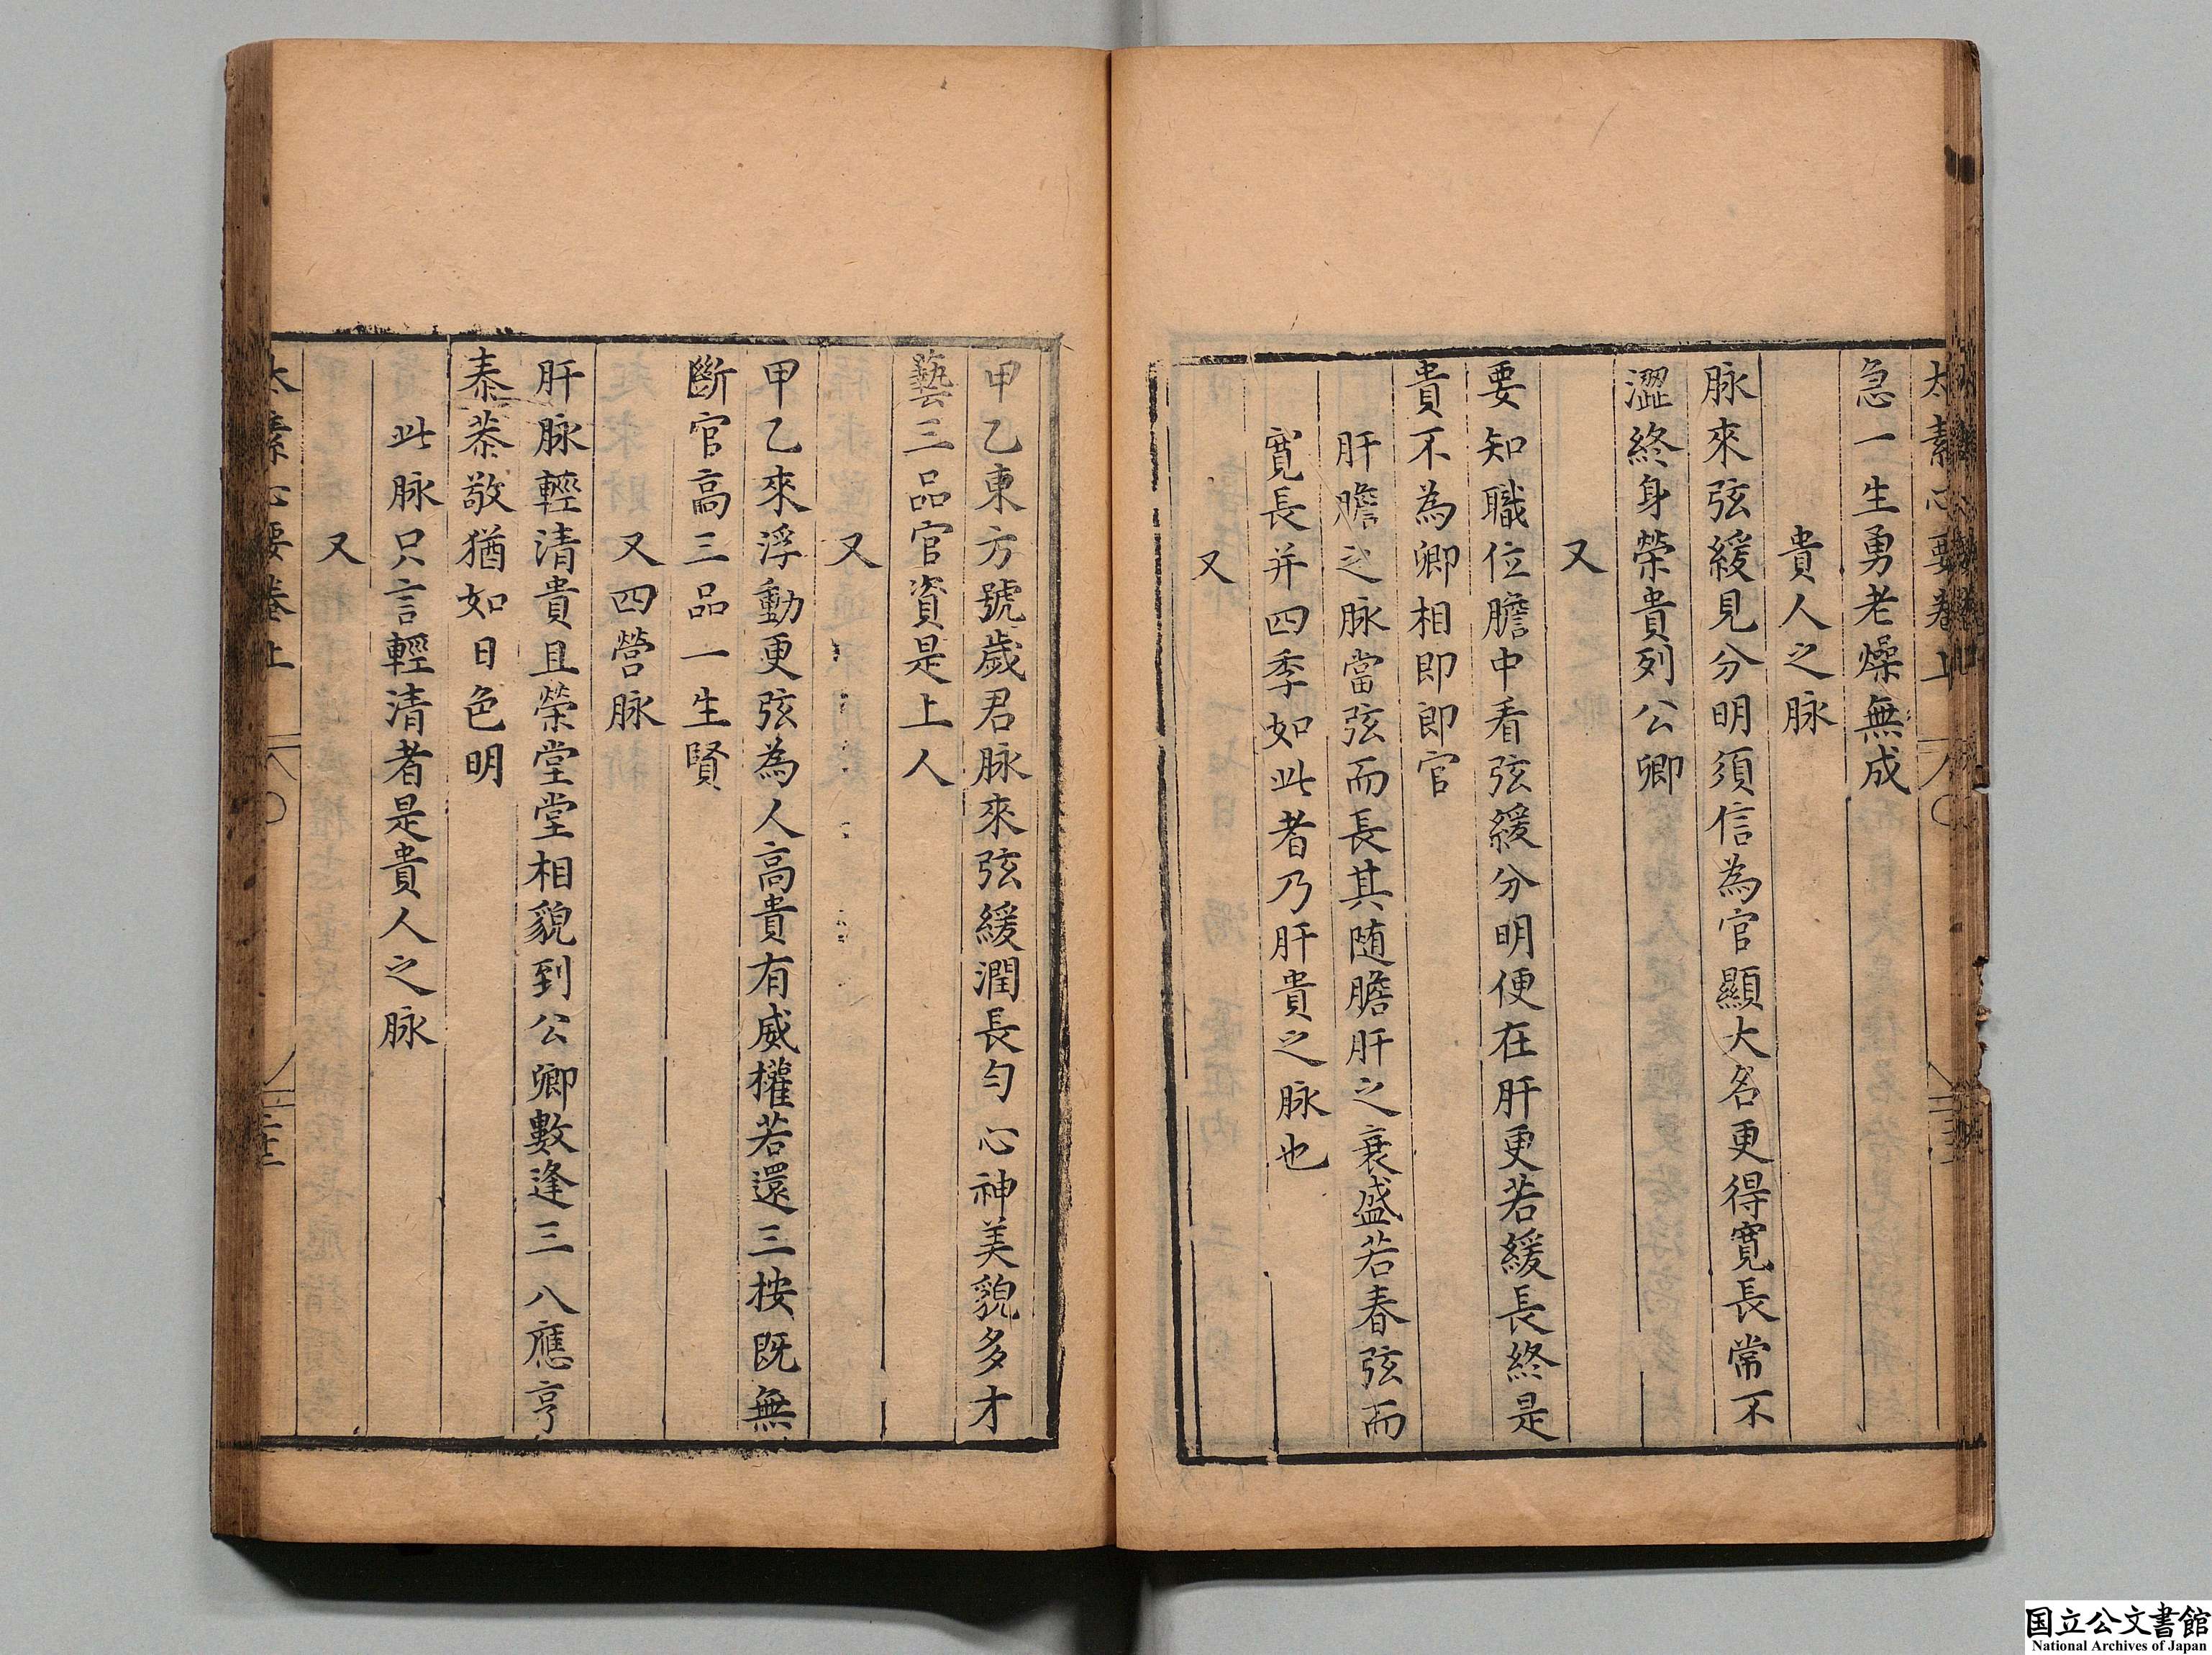 太素心要卷上
急一生勇老燥無成
貴人之脉
脉來弦緩見分明須信為官顯大名更得寬長常不
澀終身榮貴列公卿
又
要知職位膽中看弦緩分明便在肝更若緩長終是
貴不為卿相即郎官
肝膽之脉當弦而長其随膽肝之衰盛若春弦而
寬長并四季如此者乃肝貴之脉也
又
甲乙東方號歲君脉來弦緩潤長勻心神美貌多才
藝三品官資是上人
又
甲乙來浮動更弦為人高貴有威權若還三按既無
斷官高三品一生賢
又四營脉
肝脉輕清貴且榮堂堂相貌到公卿數逢三八應亨
泰恭敬猶如日色明
此脉只言輕清者是貴人之脉
又
太素心要卷上
国立公文書館
National Archives of Japan